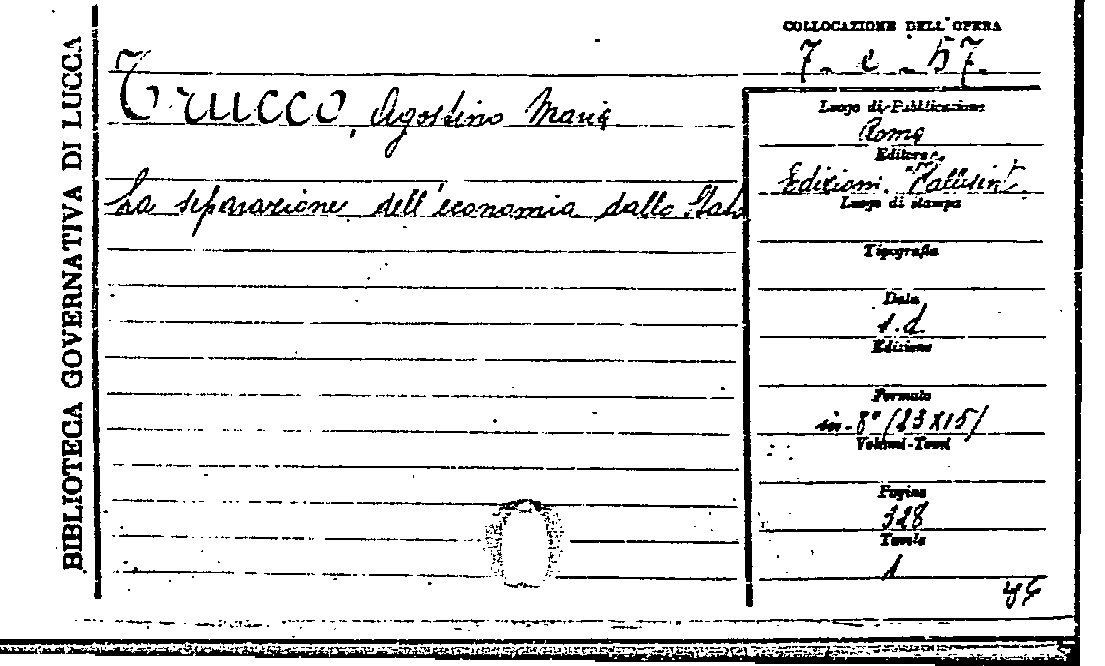 BIBLIOTECA GOVERNATIVA DI LUCCA
COLLOCAZIONE DELL'OPERA
7. c. 57.
Trucco, Agostino Maria
La separazione dell'economia dallo Stato
Luogo di Pubblicazione
Roma
Editore
Edizioni.
Luogo di stampa
Tipografia
Data
s.d.
Edizione
Formato
in-8° (23X15)
Volumi-Tomi
Pagine
328
Tavole
1